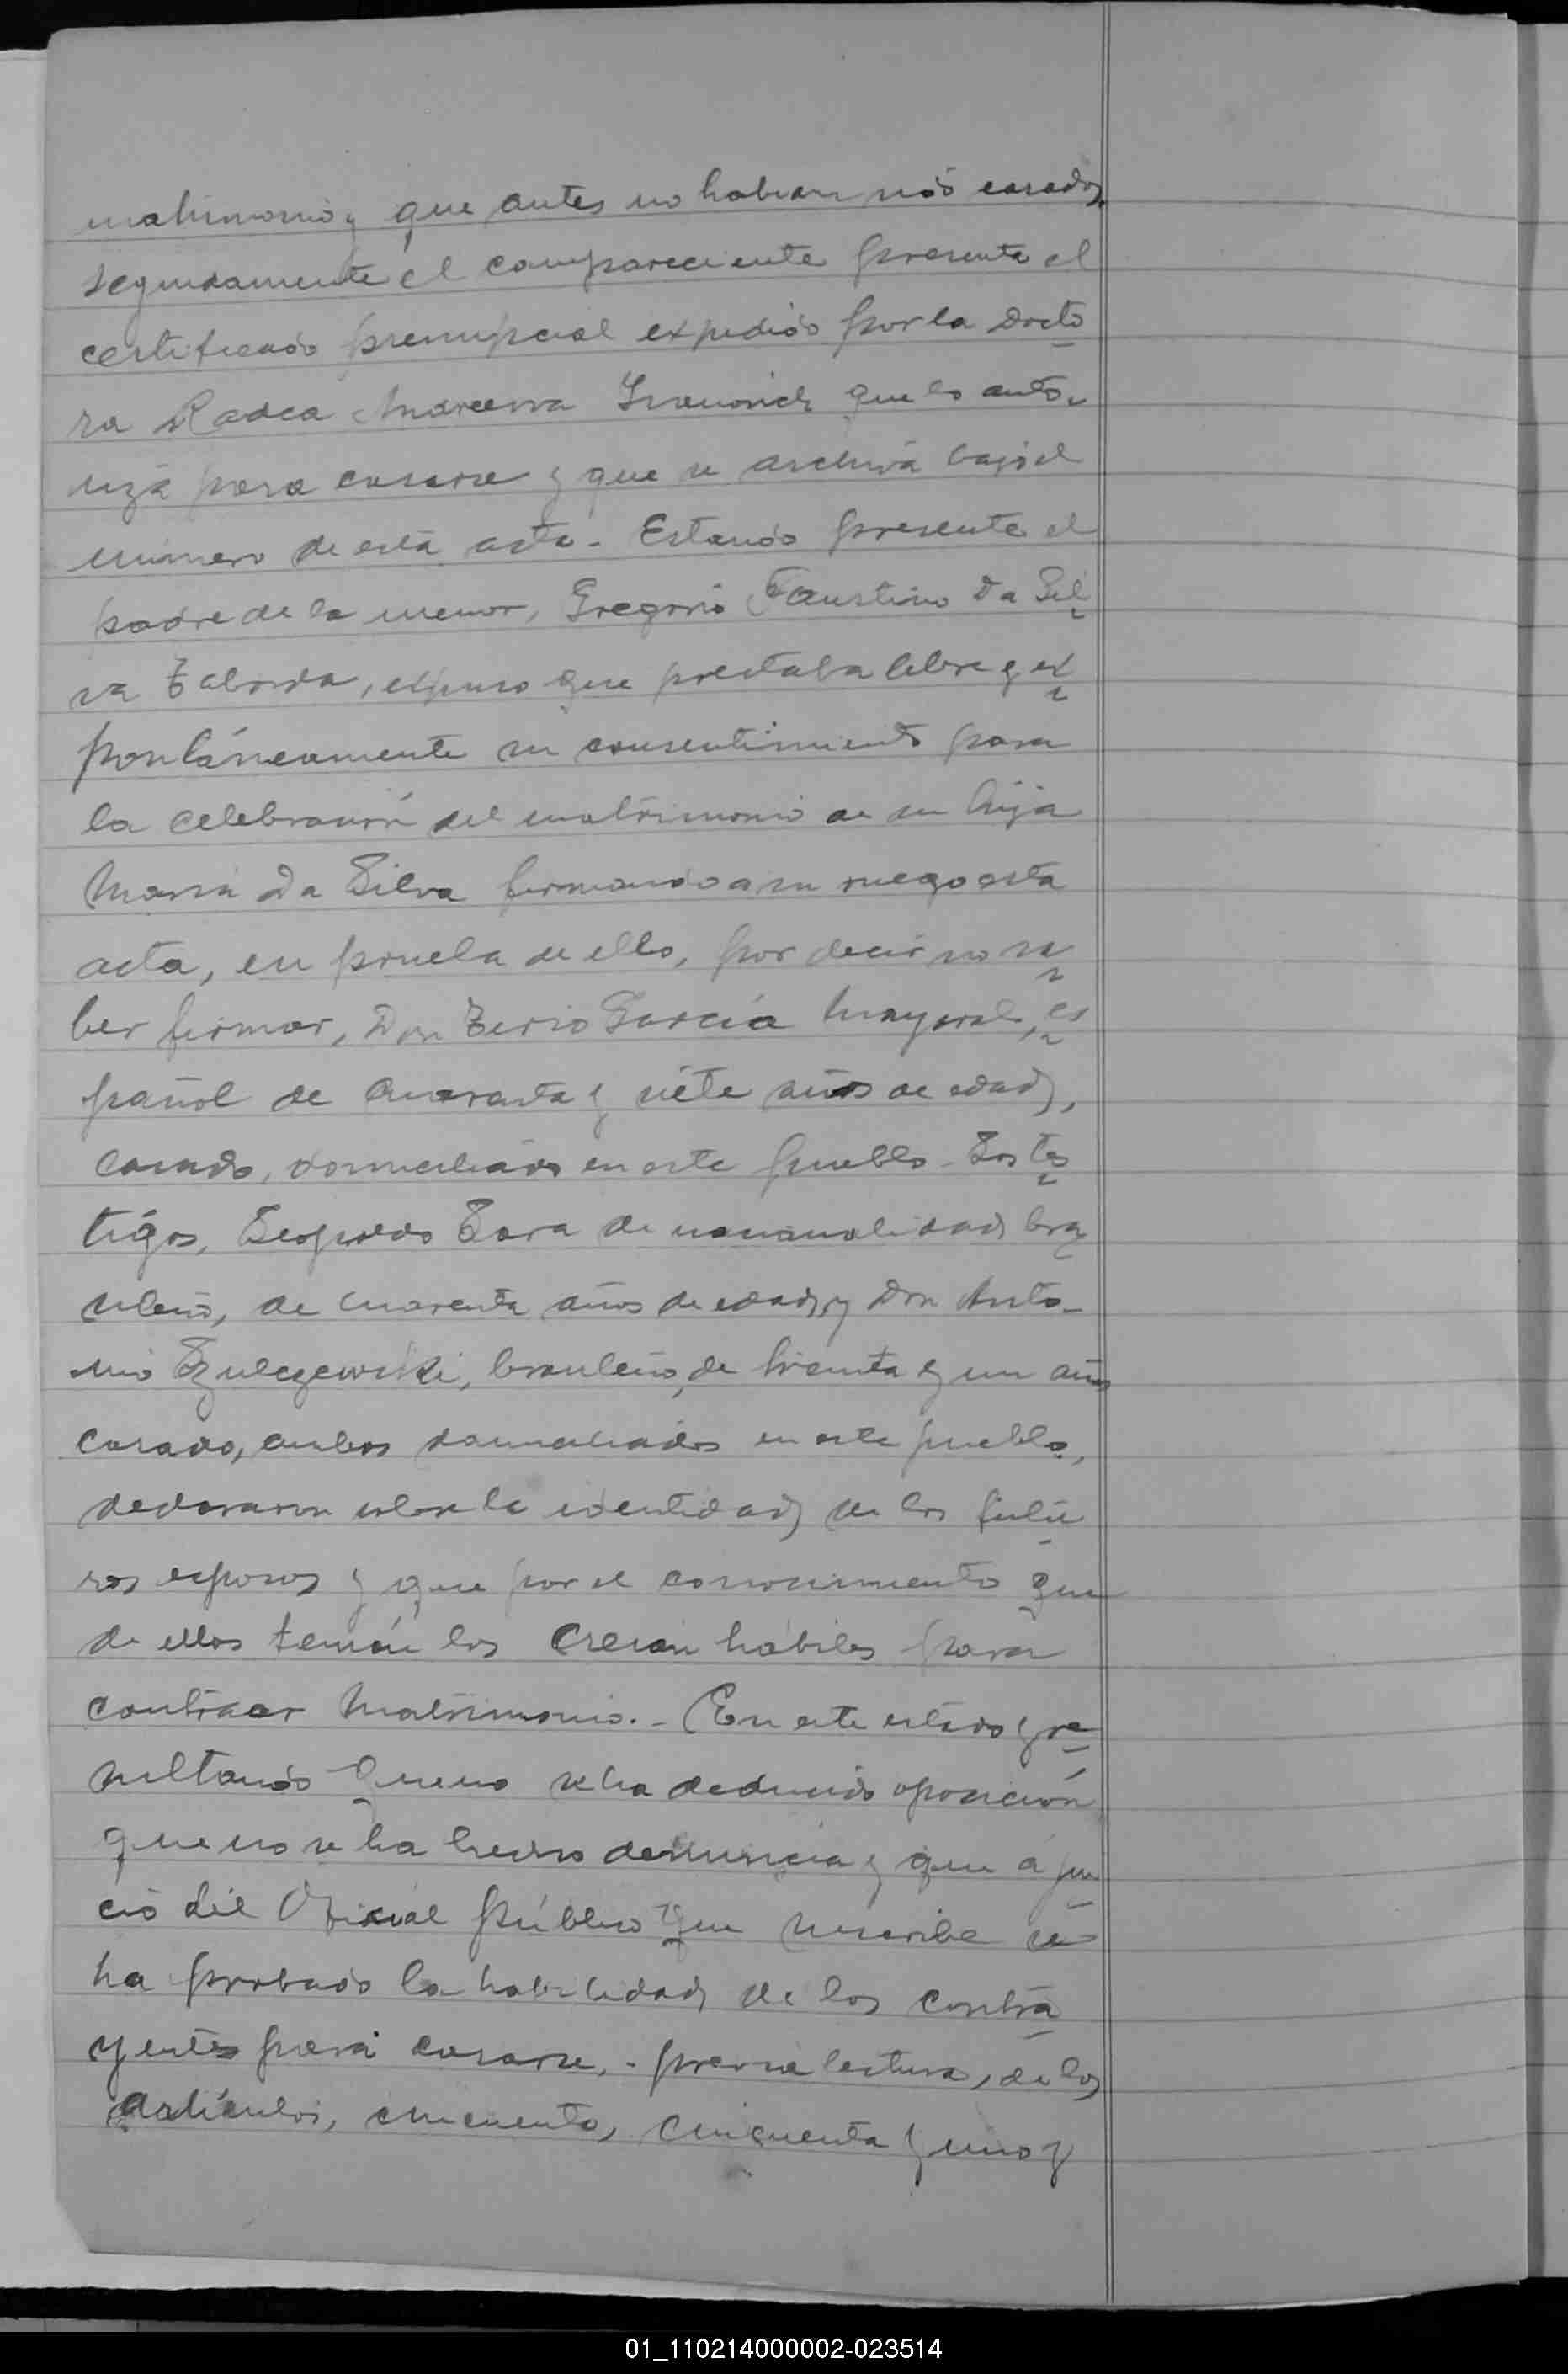 matrimonio y que antes no habian sido casados.
seguidamente el compareciente presenta el
certificado prenupcial expedido por la docto
ra Radca Andreewa que lo auto-
riza para casarse y que se archiva bajo el
número de esta acta - Estando presente el
padre de la menor, Gregorio Faustino Da Sil
va Taborda, expuso que prestaba libre y es
pontáneamente su consentimiento para
la celebración del matrimonio de su hija
Maria Da Silva firmando a su ruego esta
acta, en prueba de ello, por decir no sa
ber firmar, Don García Mayoral, es
pañol de cuarenta y siete años de edad,
casado, domiciliado en este pueblo - Los tes
tigos, Leopoldo Lara de nacionalidad bra
sileño, de cuarenta años de edad, y Don Anto-
nio Szulczewski, brasileño, de treinta y un años
casado, ambos domiciliados en este pueblo,
declararon sobre la identidad de los futu
ros esposos y que por el conocimiento que
de ellos tenían los creían hábiles para
contraer matrimonio. - En este estado y re
sultando que no se ha deducido oposición
que no se ha hecho denuncia y que á jui
cio del Oficial público que suscribe se
ha probado la habilidad de los contra
yentes para casarse, - previa lectura, de los
artículos, cincuenta, cincuenta y uno y
01_110214000002-023514